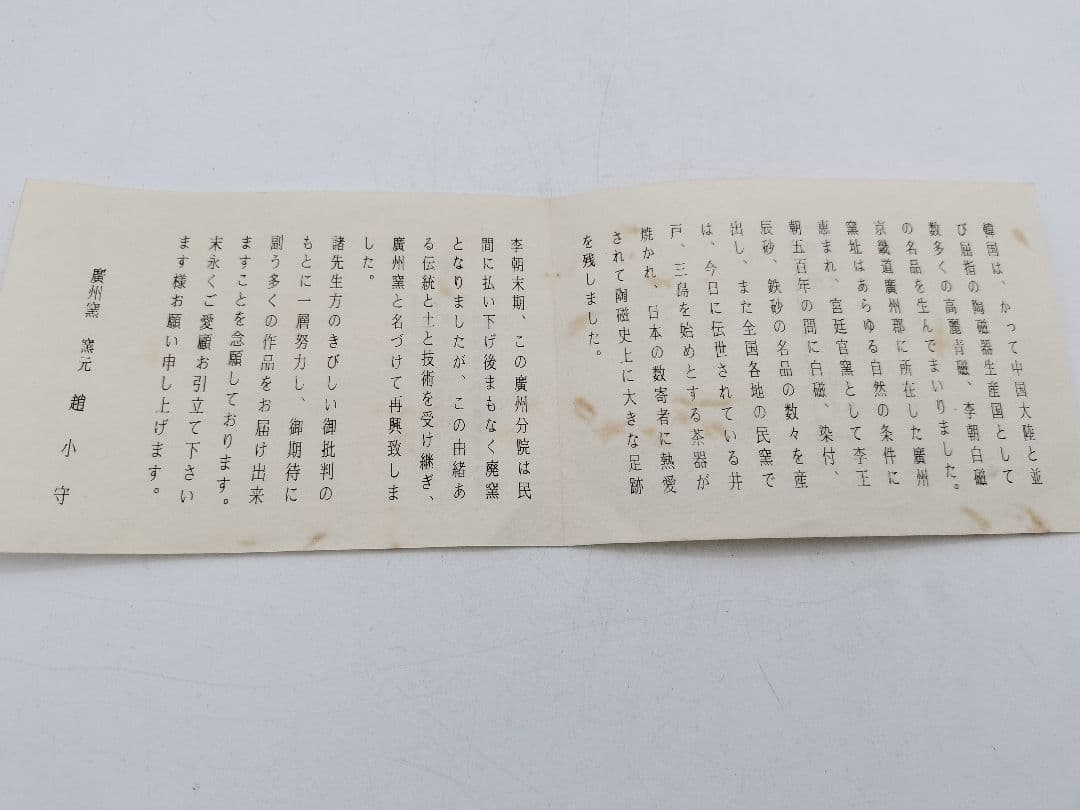 韓国は、かって中国大陸と並
び屈指の陶磁器生産国として
数多くの高麗青磁、李朝白磁
の名品を生んでまいりました。
京畿道廣州郡に所在した廣州
窯址はあらゆる自然の条件に
恵まれ、宮廷官窯として李王
朝五百年の間に白磁、染付、
辰砂、鉄砂の名品の数々を産
出し、また全国各地の民窯で
は、今日に伝世されている井
戸、三島を始めとする茶器が
焼かれ、日本の数寄者に熱愛
されて陶磁史上に大きな足跡
を残しました。
李朝末期、この廣州分院は民
間に払い下げ後まもなく廃窯
となりましたが、この由緒あ
る伝統と土と技術を受け継ぎ、
廣州窯と名づけて再興致しま
した。
諸先生方のきびしい御批判の
もとに一層努力し、御期待に
副う多くの作品をお届け出来
ますことを念願しております。
末永くご愛顧お引立て下さい
ます様お願い申し上げます。
廣州窯 窯元 趙小守